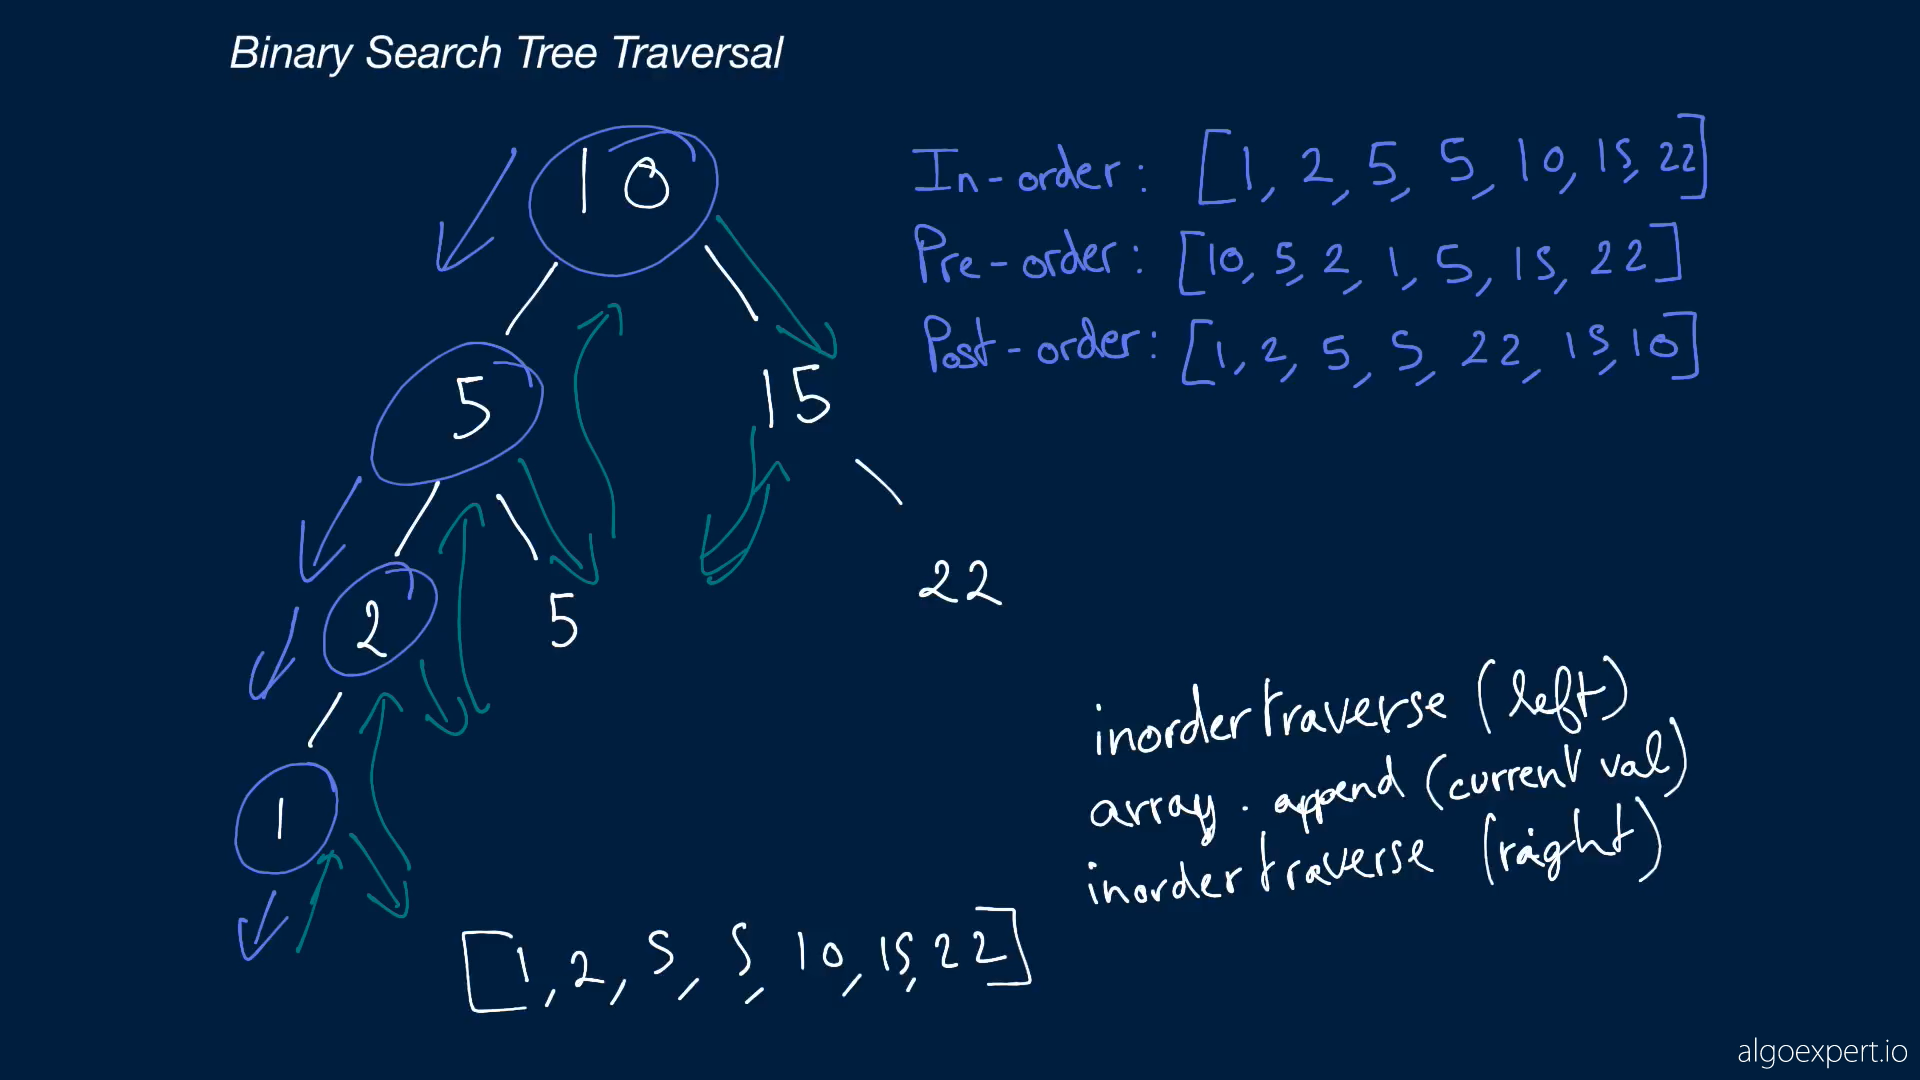 Binary Search Tree Traversal
10
5
15
2
5
22
1
In-order: [1, 2, 5, 5, 10, 15, 22]
Pre-order: [10, 5, 2, 1, 5, 15, 22]
Post-order: [1, 2, 5, 5, 22, 15, 10]
inordertraverse (left)
array. append (current val)
inordertraverse (right)
[1, 2, 5, 5, 10, 15, 22]
algoexpert.io